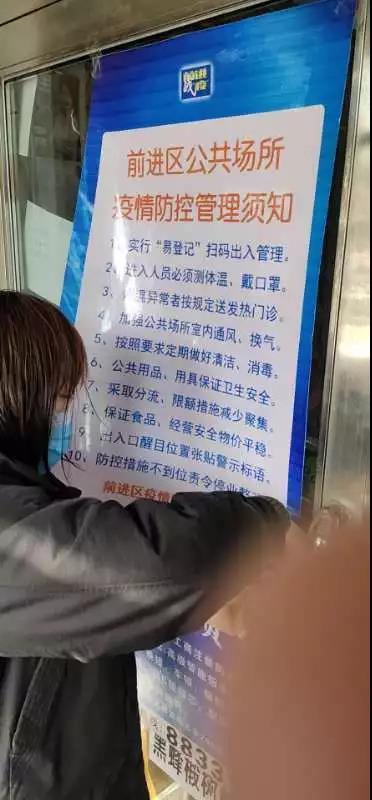 前进区公共场所
疫情防控管理须知
1、实行“易登记”扫码出入管理。
2、进入人员必须测体温、戴口罩。
3、体温异常者按规定送发热门诊。
4、加强公共场所室内通风、换气。
5、按照要求定期做好清洁、消毒。
6、公共用品、用具保证卫生安全。
7、采取分流、限额措施减少聚集。
8、保证食品、经营安全物价平稳。
9、出入口醒目位置张贴警示标语。
10、防控措施不到位责令停业整
前进区疫情
工商注册
高级智能
8833
黑蜂椴